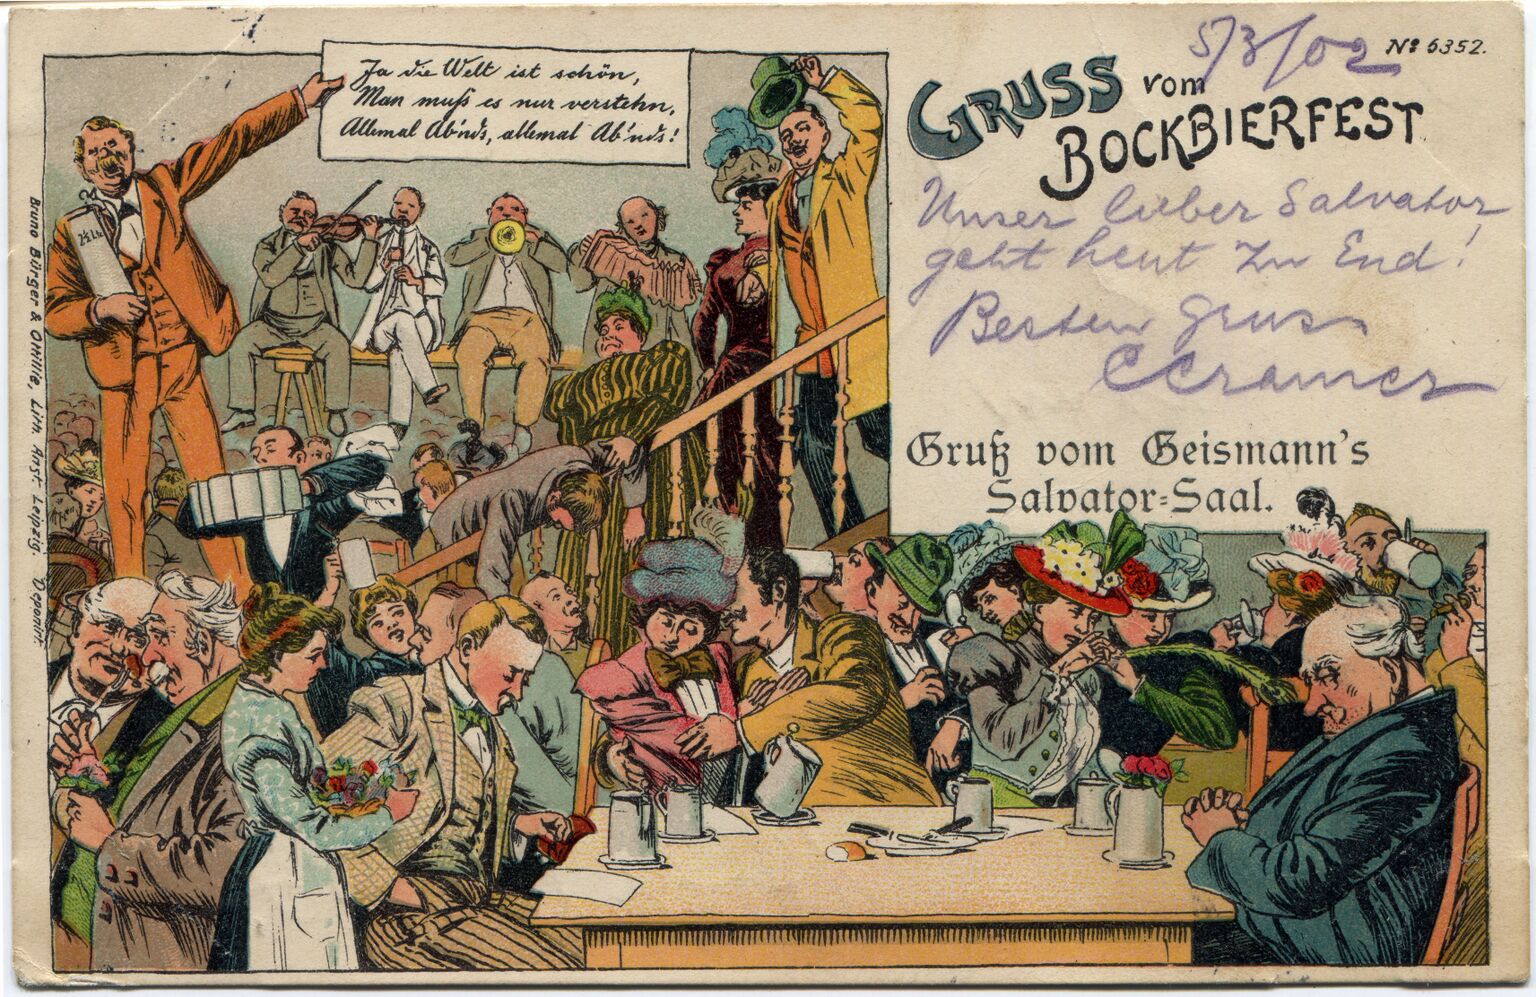 5/3/02
No 6352.
GRUSS vom
BOCKBIERFEST.
Ja die Welt ist schön,
Man muß es nur verstehn,
Allemal Ab'nds, allemal Ab'nds!
Unser lieber Salvator
geht heut zu End!
Besten Gruss
CCramer
Gruß vom Geismann's
Salvator=Saal.
2½ Ltr
Bruno Bürger & Ottillie, Lith. Anst. Leipzig. Deponirt.